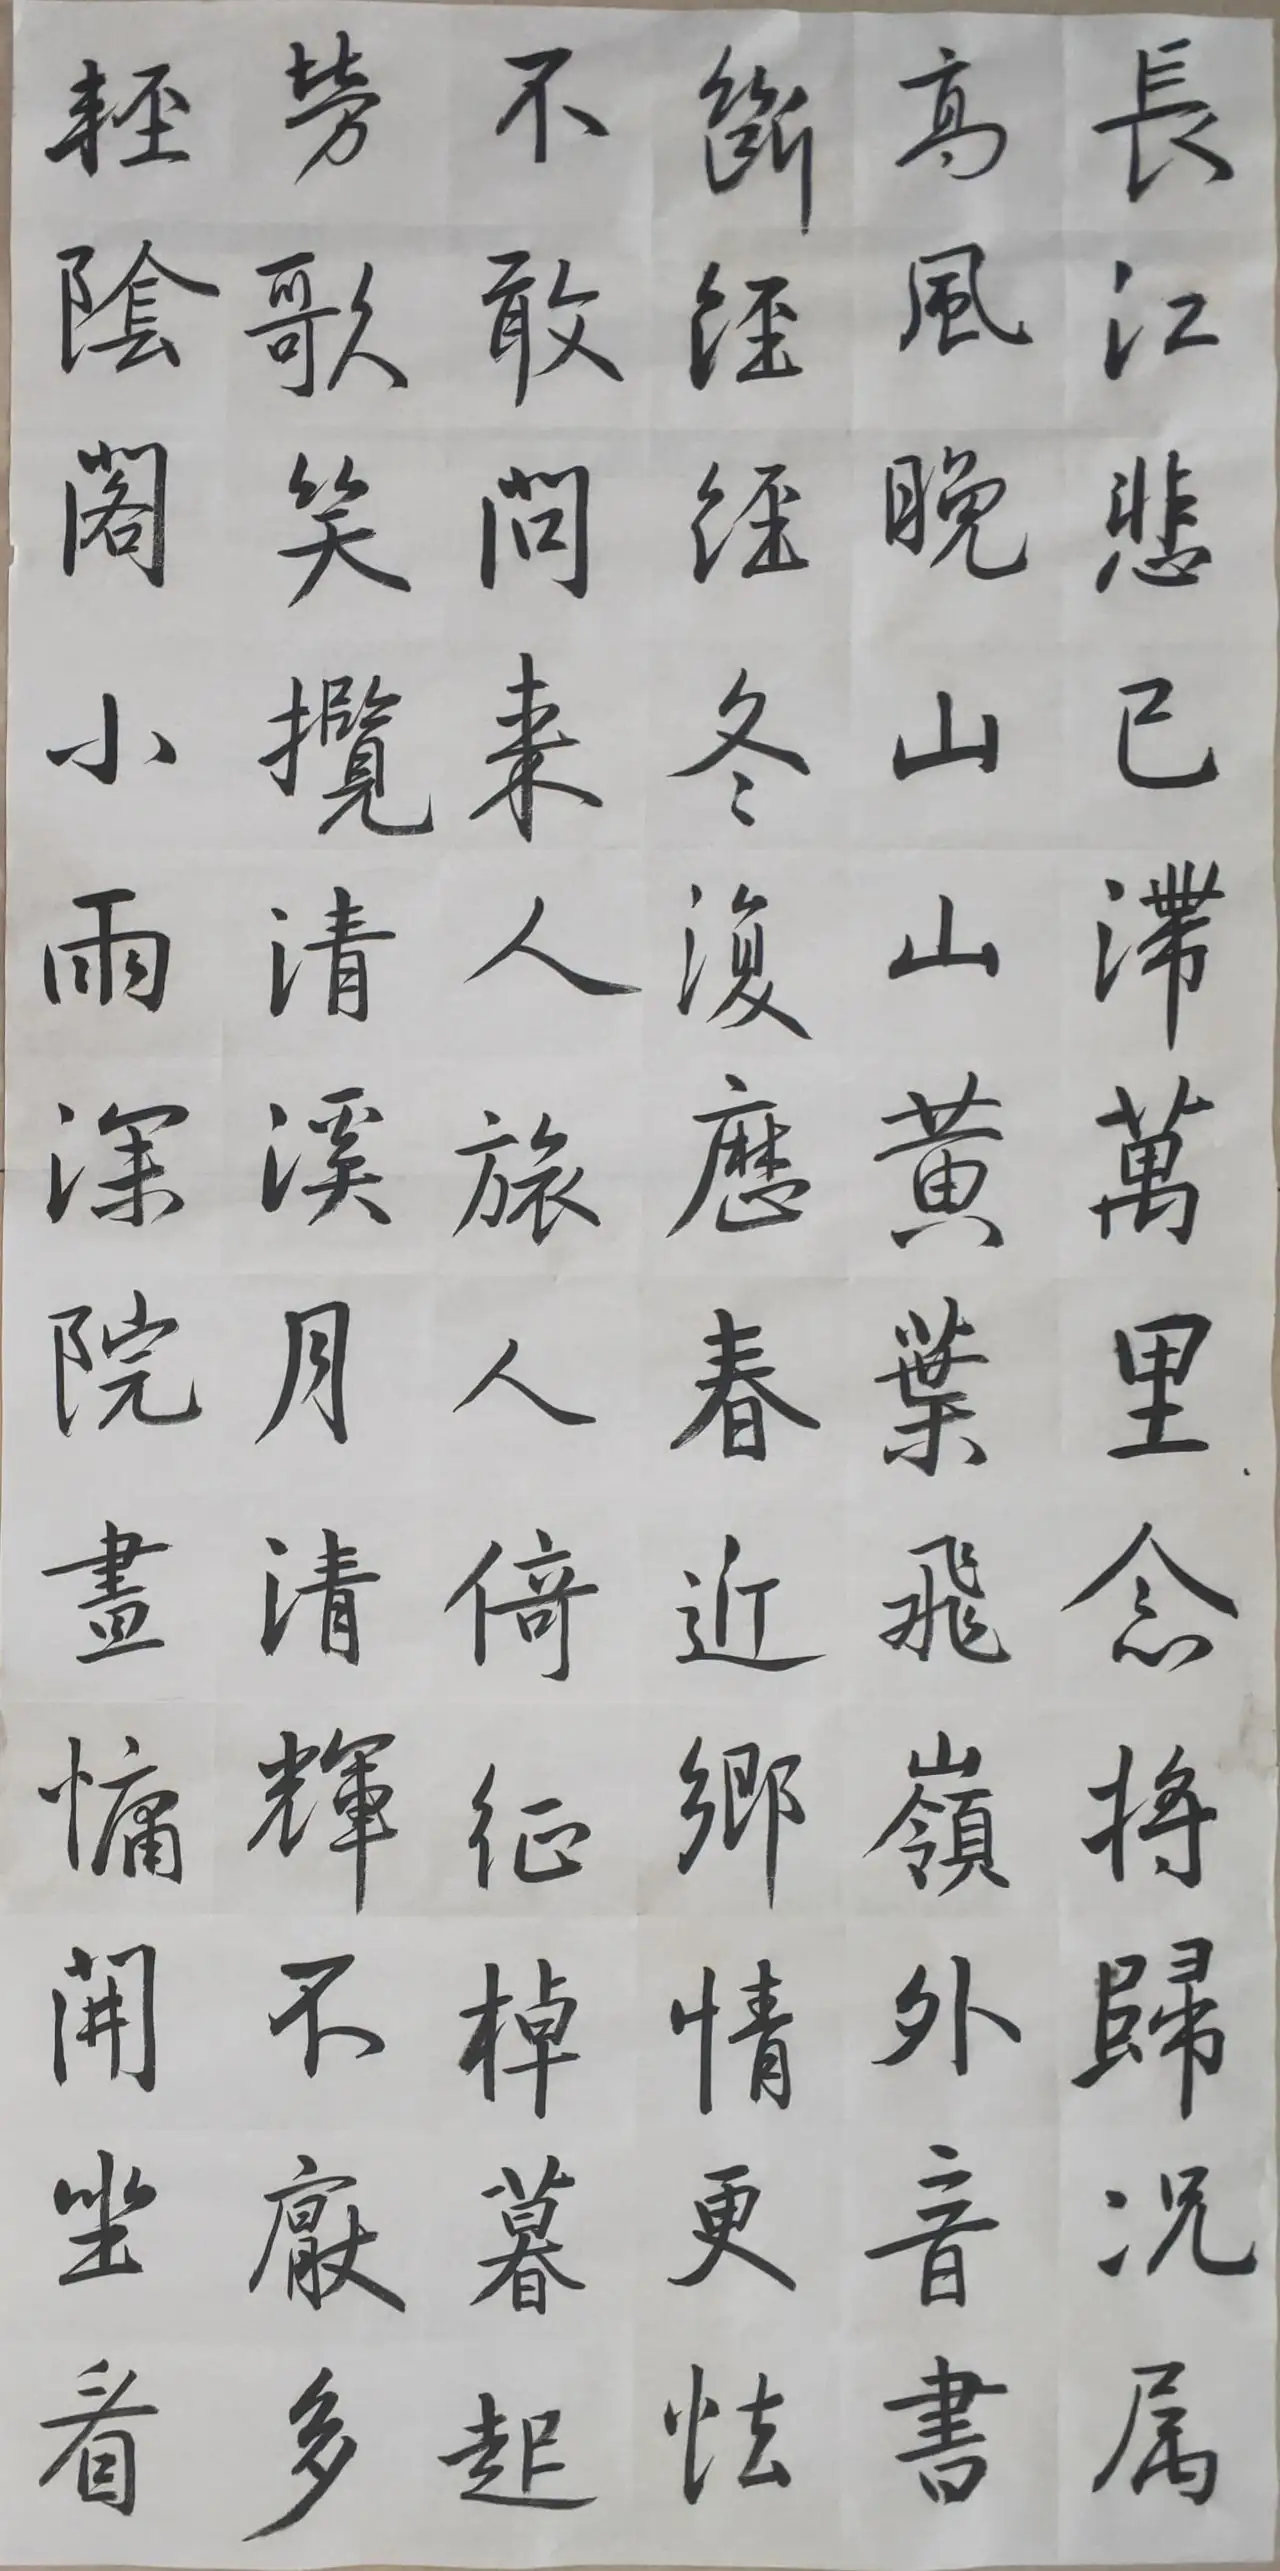 長江悲已滯萬里念將歸况属
高風晚山山黄葉飛嶺外音書
斷經經冬復歷春近鄉情更怯
不敢問来人人旅人倚征棹暮起
勞歌笑攬清溪月清輝不厭多
輕陰閣小雨深院晝慵開坐看